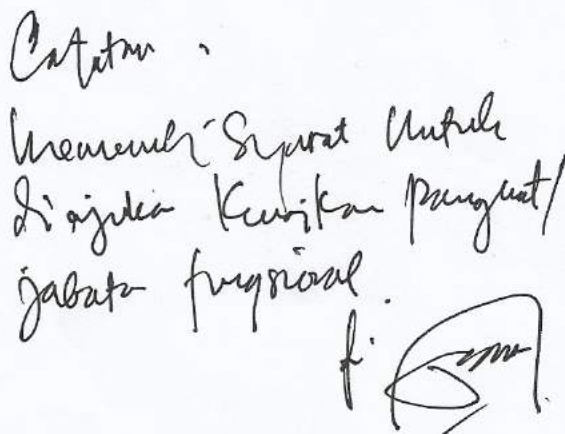 Catatan :
Memenuhi Syarat Untuk
diajukan Kenaikan Pangkat/
jabatan fungsional.